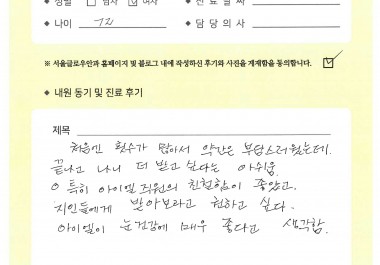 ◆ 성별 □ 남자 ☑ 여자 ◆ 진료날짜
◆ 나이 72 ◆ 담당의사
※ 서울글로우안과 홈페이지 및 블로그 내에 작성하신 후기와 사진을 게재함을 동의합니다. ☑
◆ 내원 동기 및 진료 후기
제목
처음엔 횟수가 많아서 약간은 부담스러웠는데.
끝나고 나니 더 받고 싶다는 아쉬움.
○ 특히 아이엘 직원의 친절함이 좋았고.
지인들에게 받아보라고 권하고 싶다.
아이엘이 눈건강에 매우 좋다고 생각함.